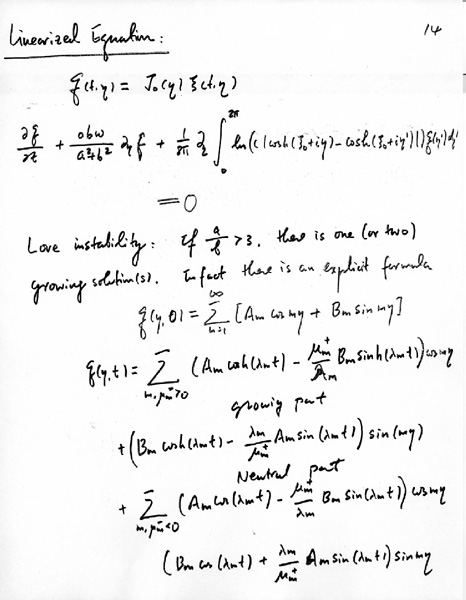 14
Linearized Equation:
ξ(t,η) = J₀(η) ξ(t,η)
∂ξ/∂t + abω/(a²+b²) ∂η ξ + 1/2π ∂η ∫₀^2π ln(c|cosh(ξ₀+iη) − cosh(ξ₀+iη')|) ξ(η') dη'
= 0
Love instability: If a/b > 3, there is one (or two)
growing solution(s). In fact there is an explicit formula
ξ(η,0) = Σ_{m=1}^∞ [Am cos mη + Bm sin mη]
ξ(η,t) = Σ_{m, μm⁻>0} (Am cosh(λmt) − μm⁺/λm Bm sinh(λmt)) cos mη
growing part
+ (Bm cosh(λmt) − λm/μm⁺ Am sin(λmt)) sin(mη)
Neutral part
+ Σ_{m, μm⁻<0} (Am cos(λmt) − μm⁺/λm Bm sin(λmt)) cos mη
(Bm cos(λmt) + λm/μm⁺ Am sin(λmt)) sin mη